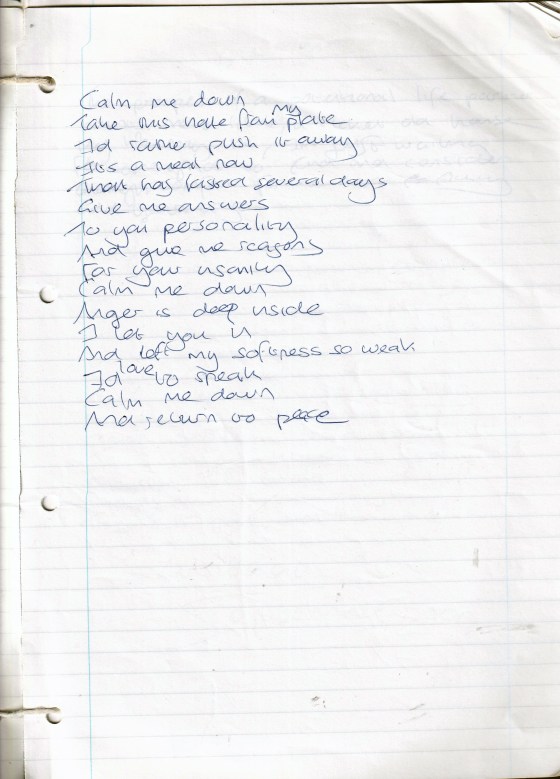 Calm me down
Take this hate from my plate
I'd rather push it away
It's a meal now
That has lasted several days
Give me answers
To your personality
And give me reasons
For your insanity
Calm me down
Anger is deep inside
I let you in
And left my softness so weak
I'd love to speak
Calm me down
And return to peace